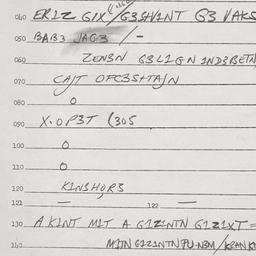 040 ERIZ GIX/G3SHVINT G3 VAKS
050 BAB3 JAG3 / -
060 ZENBN G3L1GN 1ND3BETN
070 CAJT OFC3SHTAJN
080 O
090 X.OP3T (305
100 O
110 O
120 K1NSHOR3
121 — 122 —
130 A K1NT M1T A G1Z1NTN G1Z1XT =
M1TN G1Z1NTN PU.NBM/KRANK